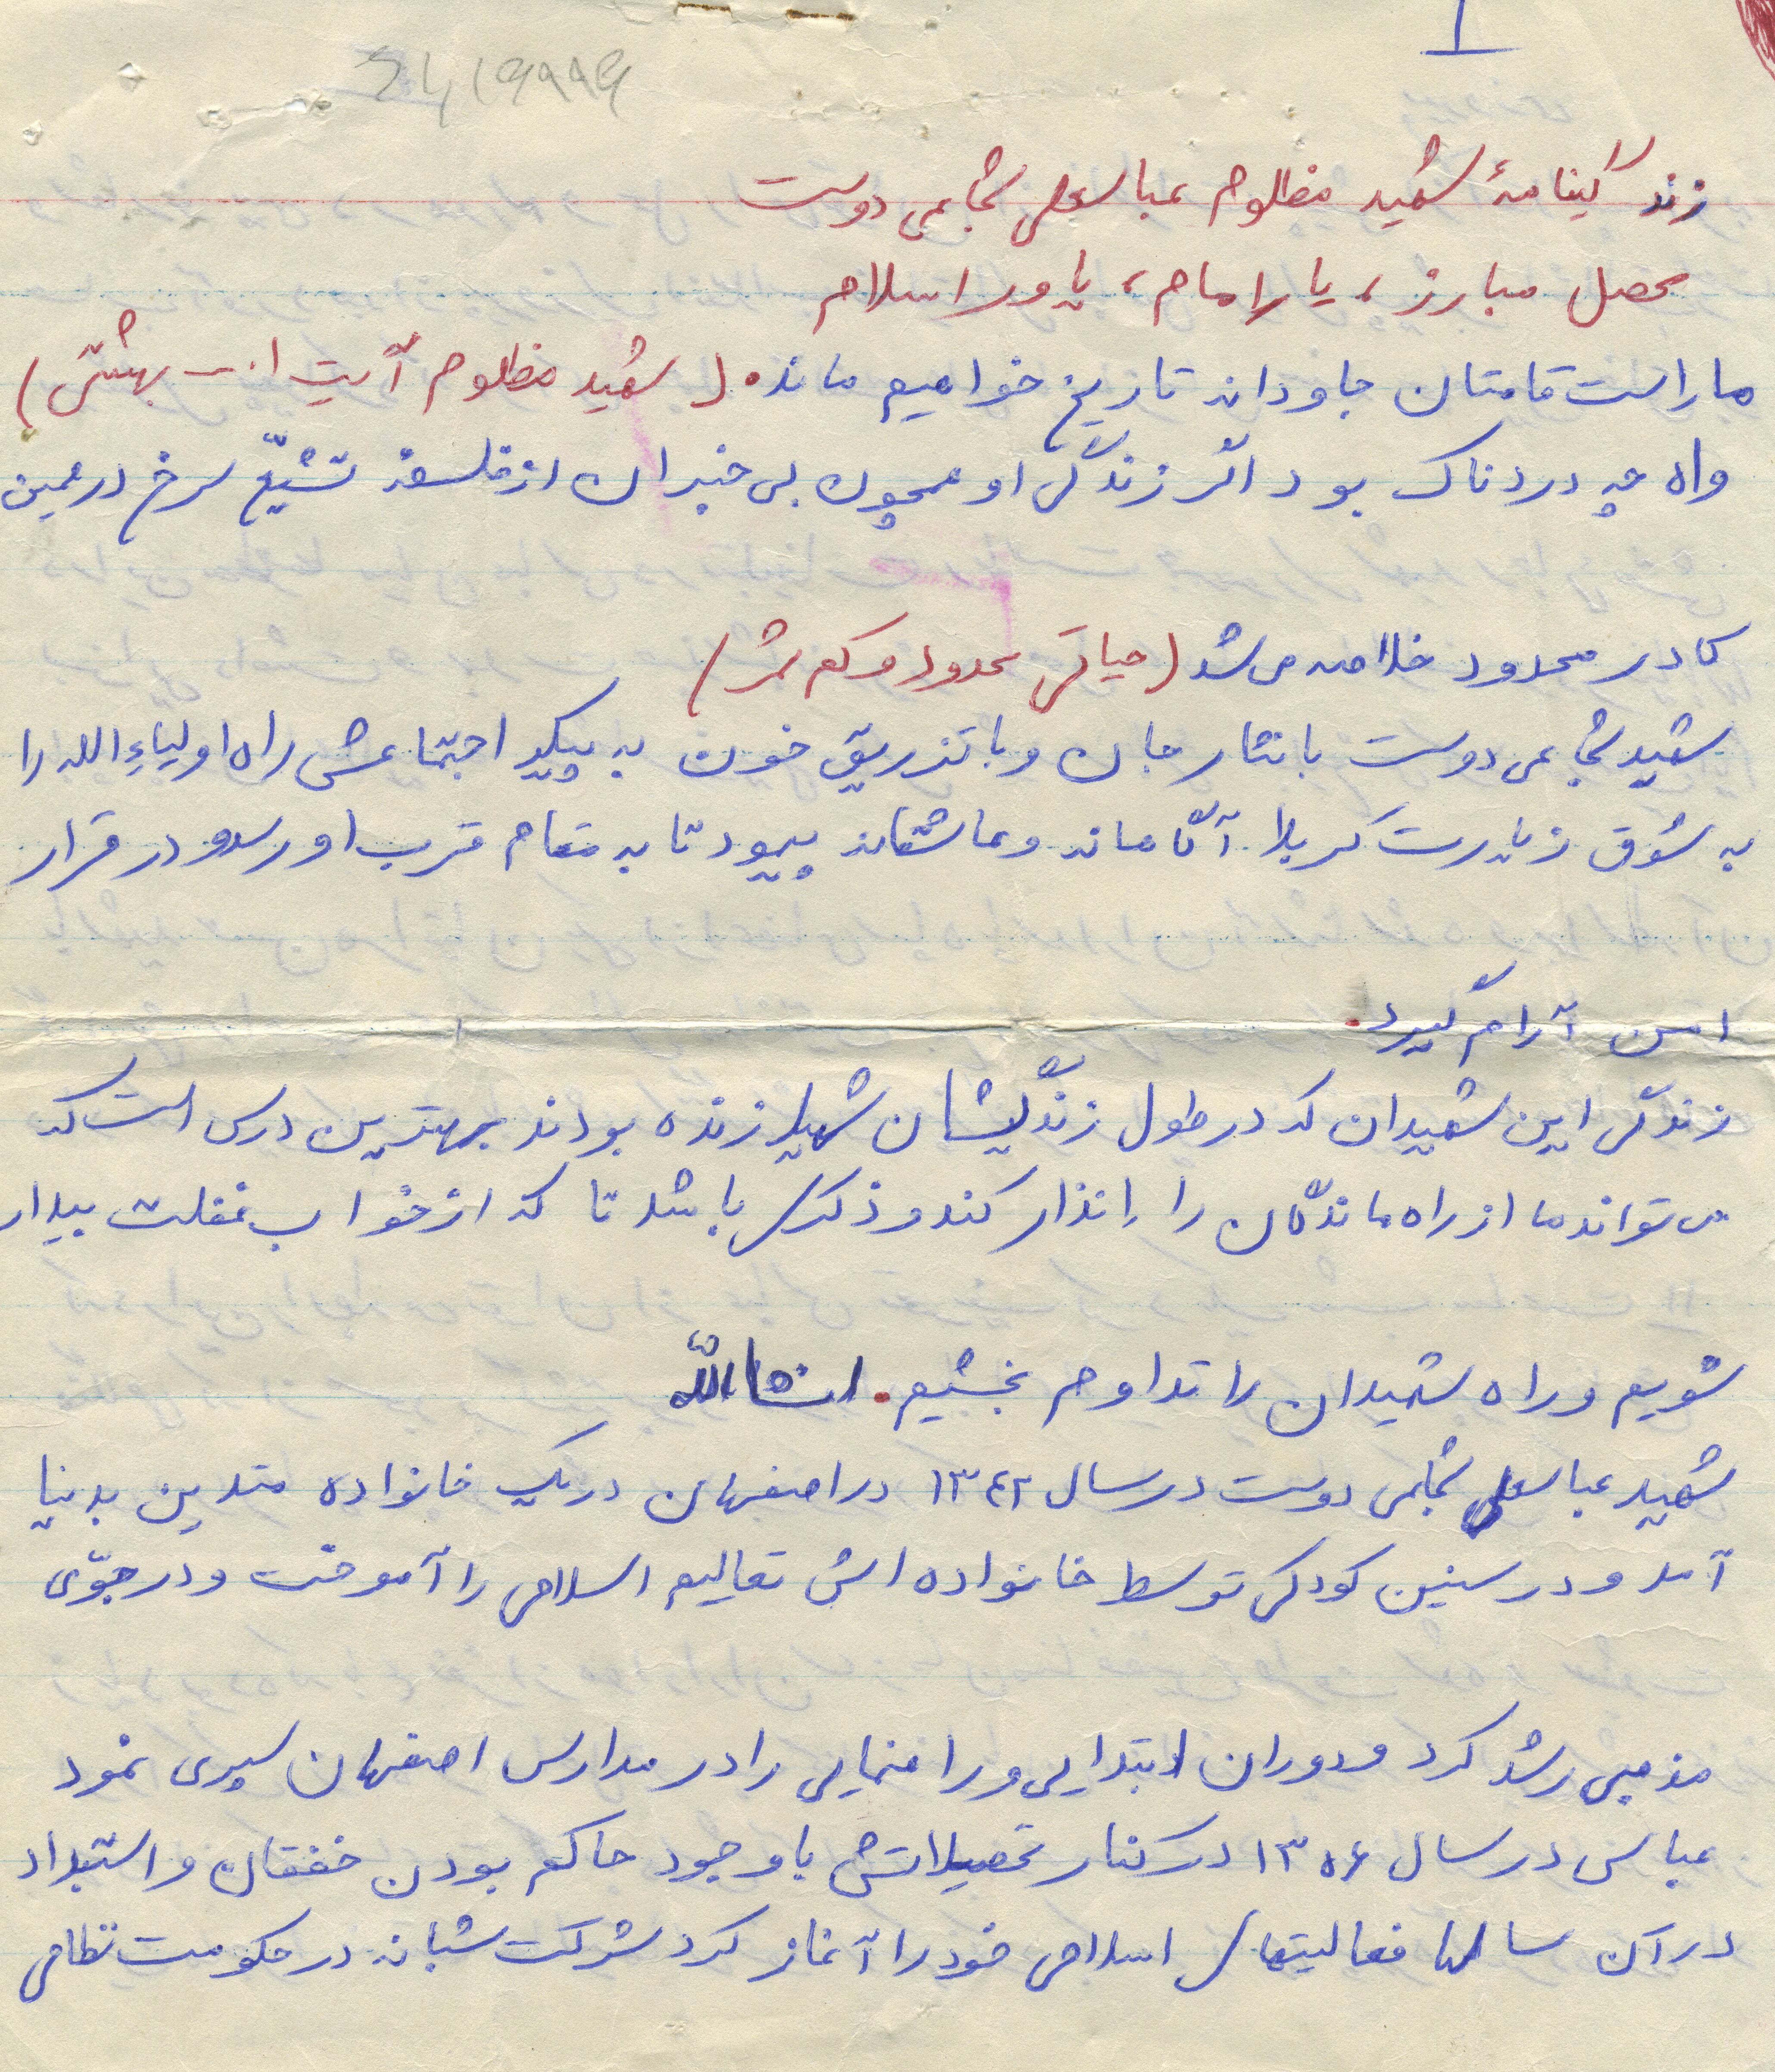 ۱
زندگینامهٔ شهید مظلوم عباسعلی شجاعی دوست
محصل مبارز، یار امام، یاور اسلام
ما راست قامتان جاودانه تاریخ خواهیم ماند. (شهید مظلوم آیت ا... بهشتی)
واه چه دردناک بود اگر زندگی او همچون بی خبران از فلسفه تشیّع سرخ در همین
کادر محدود خلاصه می شد (حیاتی محدود و کم ثمر)
شهید شجاعی دوست با نثار جان و با تزریق خون به پیکر اجتماعش راه اولیاءِ الله را
به شوق زیارت کربلا آگاهانه و عاشقانه پیمود تا به مقام قرب او رسد و در قرار
امن آرام گیرد.
زندگی این شهیدان که در طول زندگیشان شهید زنده بودند بهترین درس است که
می تواند ما از راه ماندگان را انذار کند و ذکری باشد تا که از خواب غفلت بیدار
شویم و راه شهیدان را تداوم بخشیم. انشاالله
شهید عباسعلی شجاعی دوست در سال ۱۳۴۲ در اصفهان در یک خانواده متدین بدنیا
آمد و در سنین کودکی توسط خانواده اش تعالیم اسلامی را آموخت و در جوّی
مذهبی رشد کرد و دوران ابتدایی و راهنمایی را در مدارس اصفهان سپری نمود
عباس در سال ۱۳۵۶ در کنار تحصیلاتش با وجود حاکم بودن خفقان و استبداد
در آن سالها فعالیتهای اسلامی خود را آغاز کرد شرکت شبانه در حکومت نظامی